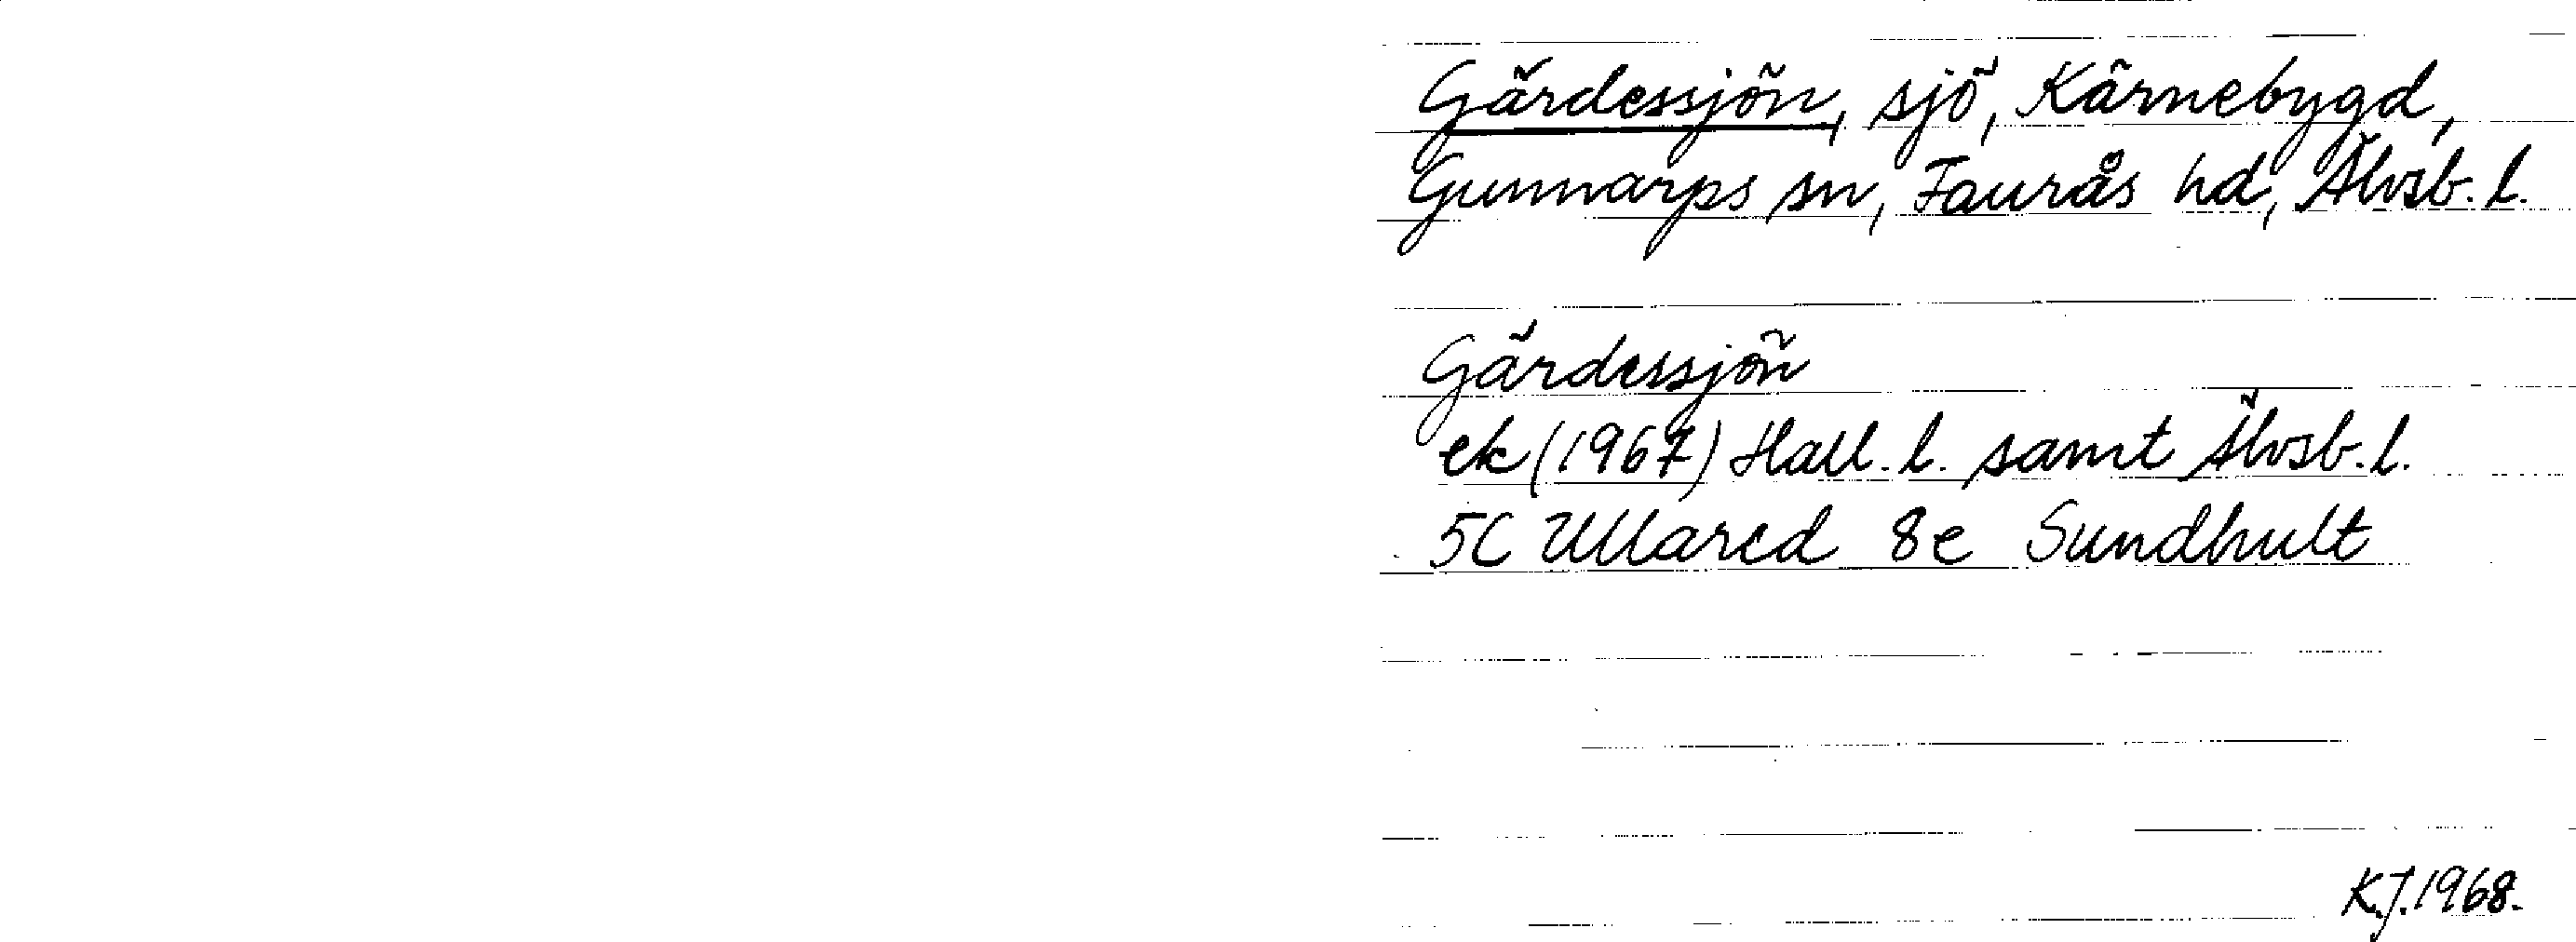 Gärdessjön, sjö, Kärnebygd,
Gunnarps sn, Faurås hd, Älvsb. l.
Gärdessjön
ek (1967) Hall. l. samt Älvsb. l.
5C Ullared 8e Sundhult
K.J. 1968.